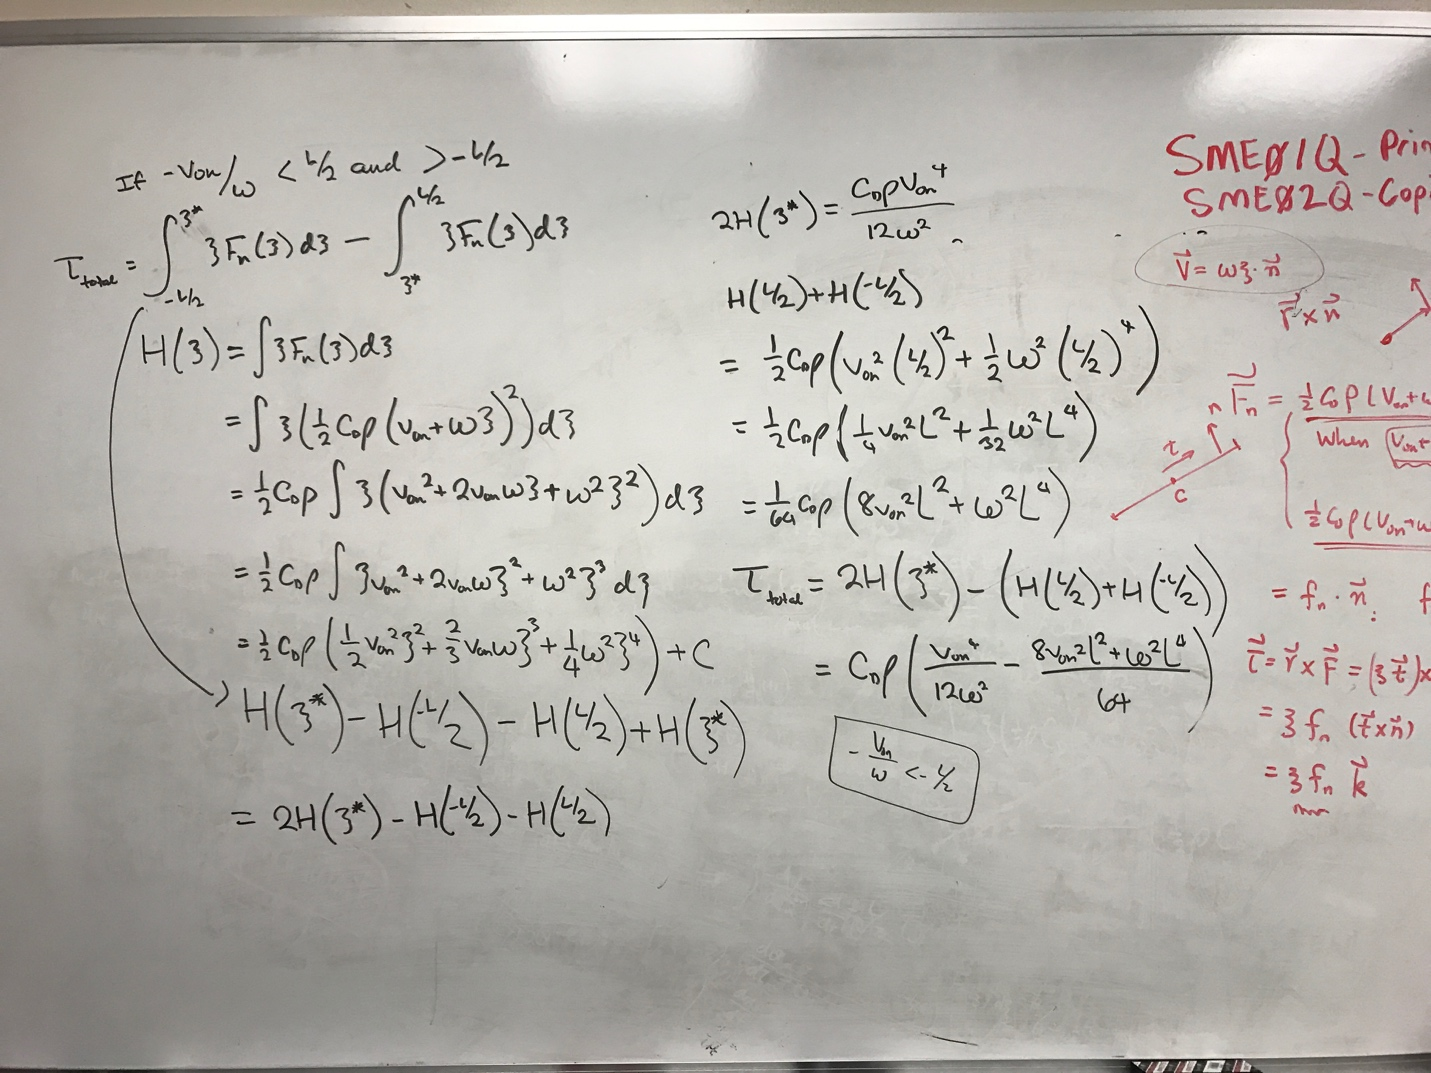 If -Von/ω < L/2 and > -L/2
τ_total = ∫_{-L/2}^{ξ*} ξF_n(ξ)dξ − ∫_{ξ*}^{L/2} ξF_n(ξ)dξ
H(ξ) = ∫ξF_n(ξ)dξ
= ∫ξ(½C_Dρ(V_on+ωξ)²)dξ
= ½C_Dρ∫ξ(V_on²+2V_onωξ+ω²ξ²)dξ
= ½C_Dρ∫ξV_on²+2V_onωξ²+ω²ξ³dξ
= ½C_Dρ(½V_on²ξ²+⅔V_onωξ³+¼ω²ξ⁴)+C
H(ξ*)−H(-L/2)−H(L/2)+H(ξ*)
= 2H(ξ*)−H(-L/2)−H(L/2)
2H(ξ*) = C_DρV_on⁴/12ω²
H(L/2)+H(-L/2)
= ½C_Dρ(V_on²(L/2)²+½ω²(L/2)⁴)
= ½C_Dρ(¼V_on²L²+1/32ω²L⁴)
= 1/64C_Dρ(8V_on²L²+ω²L⁴)
τ_total = 2H(ξ*)−(H(L/2)+H(-L/2))
= C_Dρ(V_on⁴/12ω² − (8V_on²L²+ω²L⁴)/64)
-V_on/ω < -L/2
SMEØ1Q - Prin
SMEØ2Q - Copi
V⃗ = ωξ·n⃗
r⃗ x n⃗
n
F⃗_n = ½C_Dρ(V_on+ω
t
when V_on+
c
½C_Dρ(V_on+ω
= f_n·n⃗, f
τ⃗ = r⃗ x F⃗ = (ξt⃗)x
= ξf_n(t⃗xn⃗)
= ξf_n k⃗